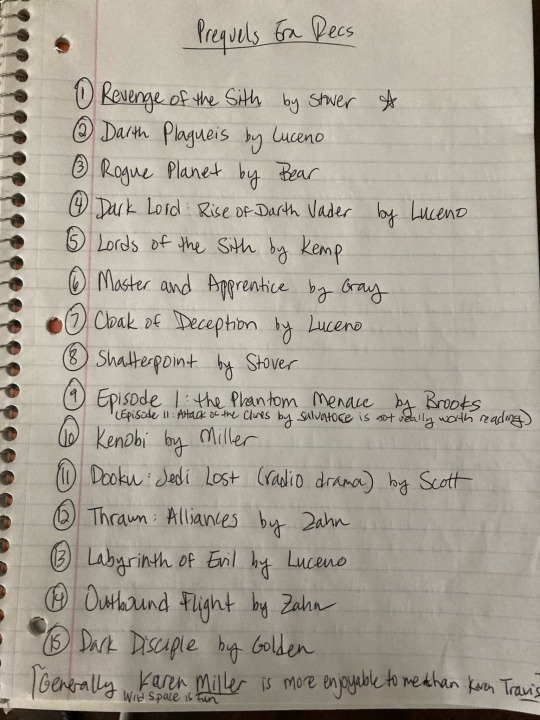 Prequels Era Recs
① Revenge of the Sith by Stover ☆
② Darth Plagueis by Luceno
③ Rogue Planet by Bear
④ Dark Lord: Rise of Darth Vader by Luceno
⑤ Lords of the Sith by Kemp
⑥ Master and Apprentice by Gray
⑦ Cloak of Deception by Luceno
⑧ Shatterpoint by Stover
⑨ Episode 1: the Phantom Menace by Brooks
(Episode II: Attack of the Clones by Salvatore is not really worth reading)
⑩ Kenobi by Miller
⑪ Dooku: Jedi Lost (radio drama) by Scott
⑫ Thrawn: Alliances by Zahn
⑬ Labyrinth of Evil by Luceno
⑭ Outbound Flight by Zahn
⑮ Dark Disciple by Golden
[Generally Karen Miller is more enjoyable to me than Karen Travis
Wild Space is fun